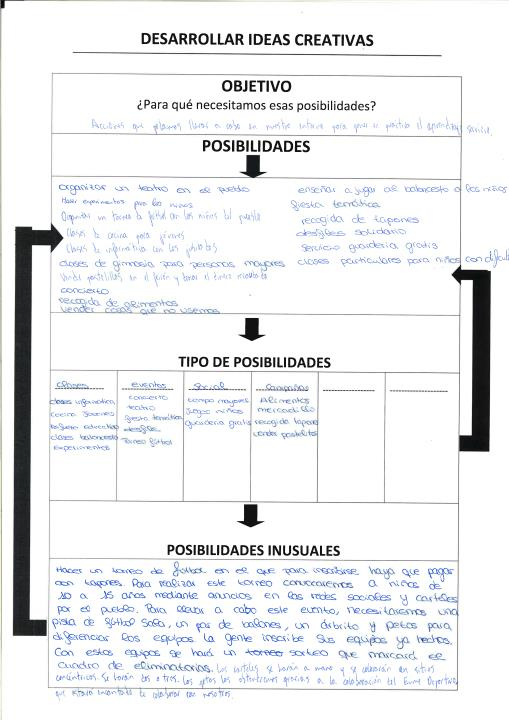 DESARROLLAR IDEAS CREATIVAS
OBJETIVO
¿Para qué necesitamos esas posibilidades?
que podamos llevar a cabo en nuestro entorno para poner en práctica el aprendizaje servicio.
POSIBILIDADES
organizar un teatro en el pueblo
Hacer experimentos para los niños
Organizar un torneo de fútbol con los niños del pueblo
Clases de cocina para jóvenes
Clases de informática con los jubilados
clases de gimnasia para personas mayores
Vender pastelitos en el y donar el dinero recaudado
concierto
recogida de alimentos
vender cosas que no usemos
enseñar a jugar al baloncesto a los niños
fiesta temática
recogida de tapones
desfiles solidario
servicio guardería gratis
clases particulares para niños con
TIPO DE POSIBILIDADES
clases
clases informática
cocina jóvenes
educativo
clases baloncesto
experimentos
eventos
concierto
teatro
fiesta temática
desfiles
Torneo fútbol
Social
campo mayores
juegos niños
guardería gratis
campañas
Alimentos
mercadillo
recogida tapones
vender pastelitos
POSIBILIDADES INUSUALES
Hacer un torneo de fútbol en el que para inscribirse haya que pagar
con tapones. Para realizar este torneo convocaremos a niños de
10 a 15 años mediante anuncios en las redes sociales y carteles
por el pueblo. Para llevar a cabo este evento, necesitaremos una
pista de fútbol sala, un par de balones, un árbitro y petos para
diferenciar los equipos la gente inscribe sus equipos ya hechos.
Con estos equipos se hará un torneo sorteo que marcará el
cuadro de eliminatorias. Los carteles se harán a mano y se colocarán en sitios
concéntricos. Se harán dos o tres. Los petos los obtendremos gracias a la colaboración del Deportivo
que estará encantado de colaborar con nosotros.